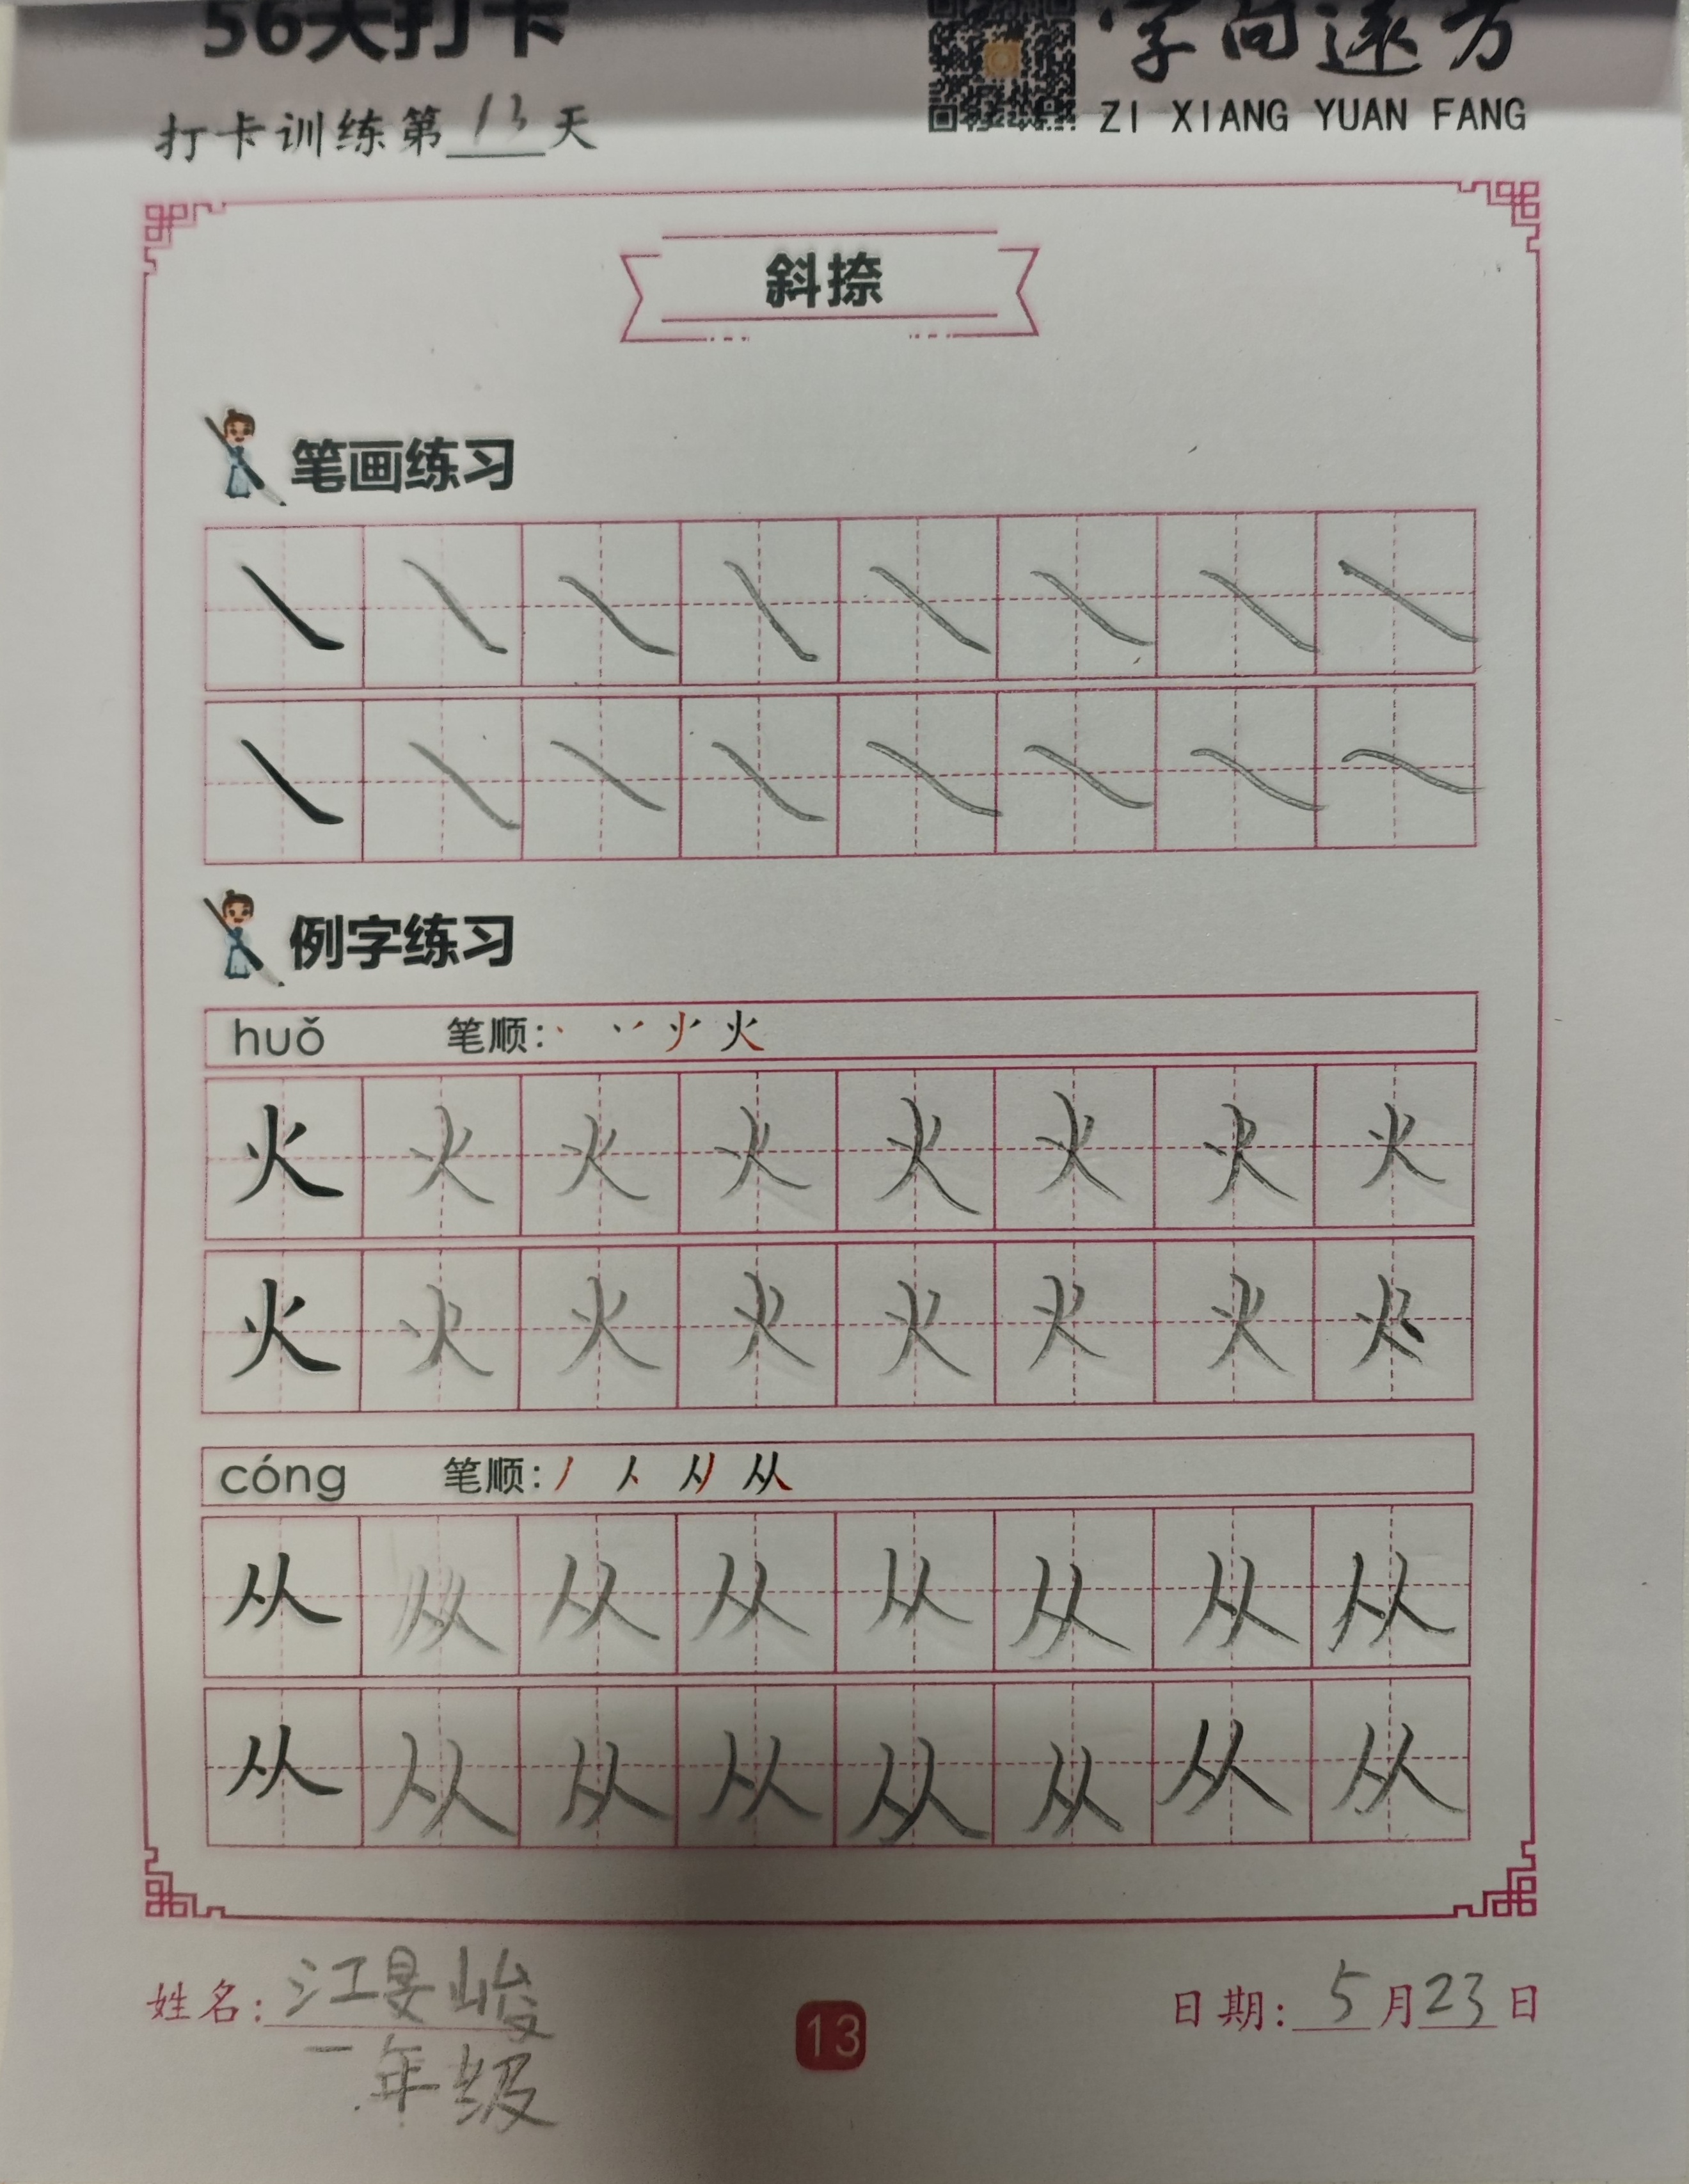 56天打卡
字向远方
ZI XIANG YUAN FANG
打卡训练第13天
斜捺
笔画练习
例字练习
huǒ 笔顺: 火
火 火 火 火 火 火 火 火
火 火 火 火 火 火 火 火
cóng 笔顺: 丿 人 从
从 从 从 从 从 从 从 从
从 从 从 从 从 从 从 从
姓名: 江旻峻
一年级
13
日期: 5月23日